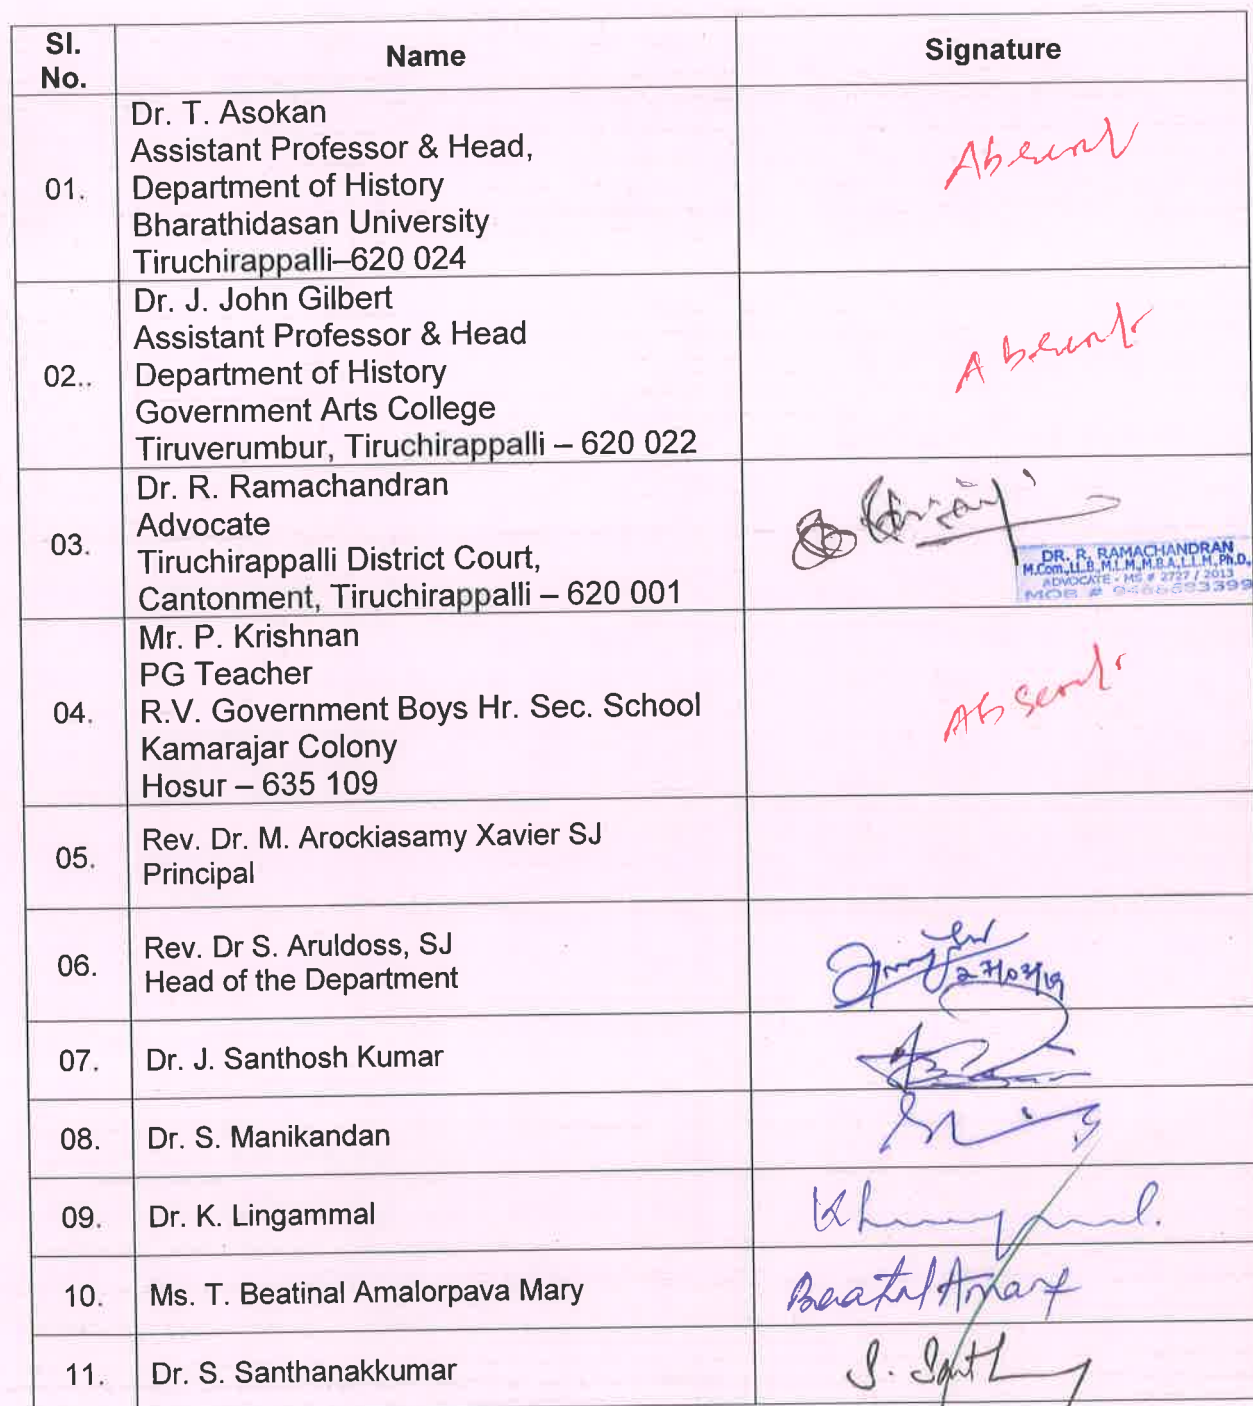 Sl. No.
Name
Signature
01.
Dr. T. Asokan
Assistant Professor & Head,
Department of History
Bharathidasan University
Tiruchirappalli–620 024
Absent
02..
Dr. J. John Gilbert
Assistant Professor & Head
Department of History
Government Arts College
Tiruverumbur, Tiruchirappalli – 620 022
Absent
03.
Dr. R. Ramachandran
Advocate
Tiruchirappalli District Court,
Cantonment, Tiruchirappalli – 620 001
DR. R. RAMACHANDRAN
M.Com.,LL.B.,M.L.M.,M.B.A.,LL.M.,Ph.D.,
ADVOCATE - MS # 2727 / 2013
MOB #
04.
Mr. P. Krishnan
PG Teacher
R.V. Government Boys Hr. Sec. School
Kamarajar Colony
Hosur – 635 109
Absent
05.
Rev. Dr. M. Arockiasamy Xavier SJ
Principal
06.
Rev. Dr S. Aruldoss, SJ
Head of the Department
27/03/19
07.
Dr. J. Santhosh Kumar
08.
Dr. S. Manikandan
09.
Dr. K. Lingammal
10.
Ms. T. Beatinal Amalorpava Mary
11.
Dr. S. Santhanakkumar